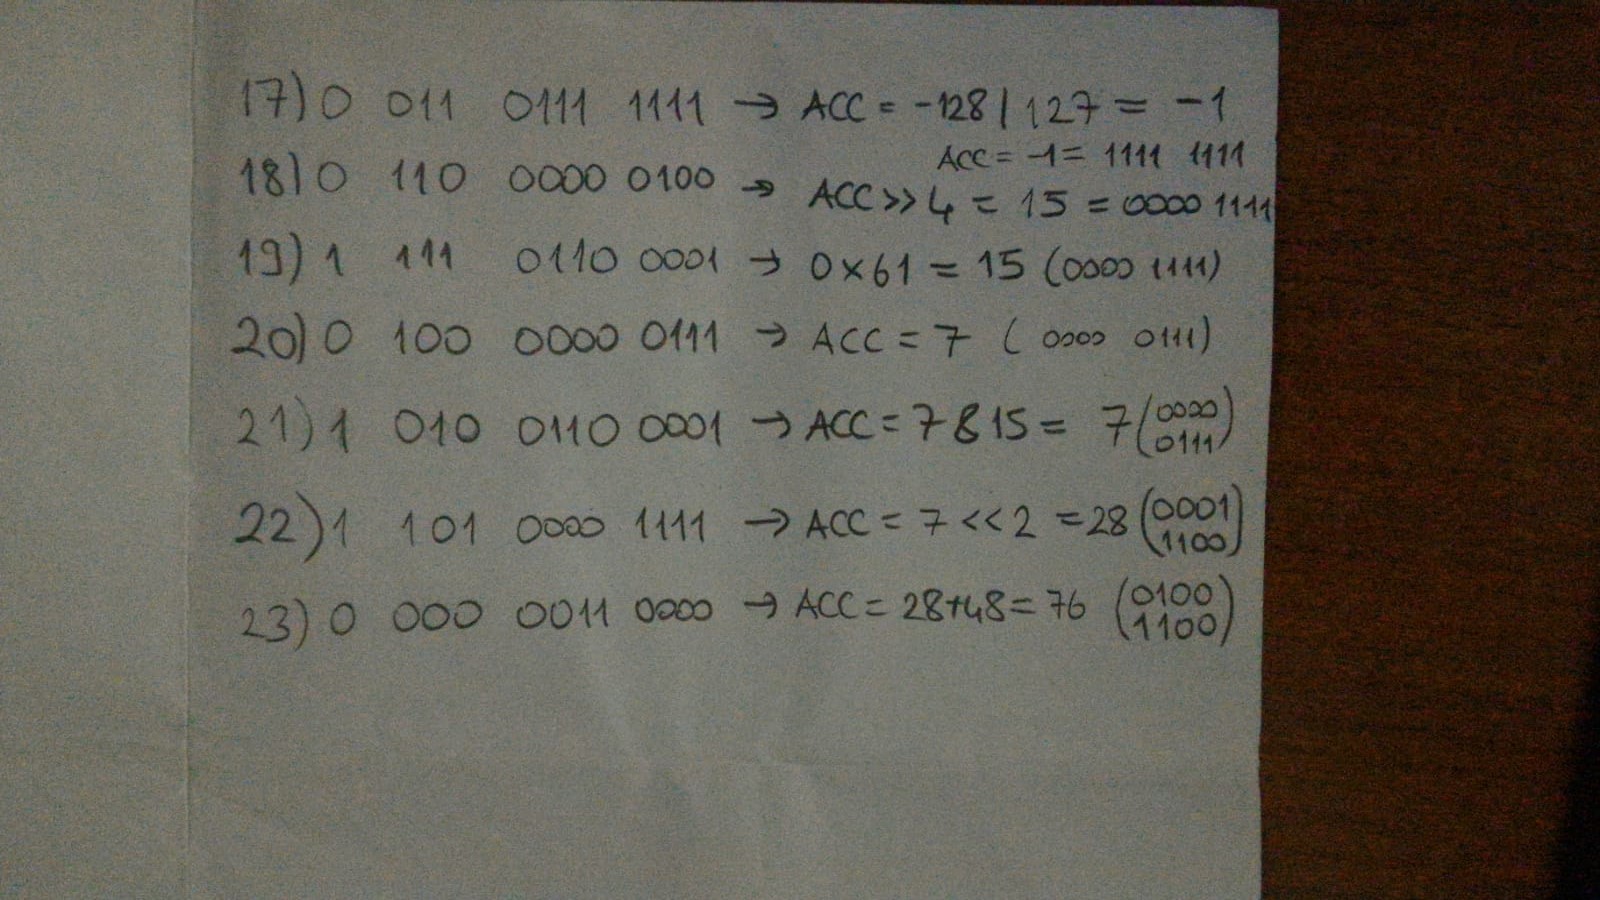 17) 0 011 0111 1111 → ACC = -128 | 127 = -1
ACC = -1 = 1111 1111
18) 0 110 0000 0100 → ACC >> 4 = 15 = 0000 1111
19) 1 111 0110 0001 → 0x61 = 15 (0000 1111)
20) 0 100 0000 0111 → ACC = 7 (0000 0111)
21) 1 010 0110 0001 → ACC = 7 & 15 = 7 (0000 0111)
22) 1 101 0000 1111 → ACC = 7 << 2 = 28 (0001 1100)
23) 0 000 0011 0000 → ACC = 28+48 = 76 (0100 1100)